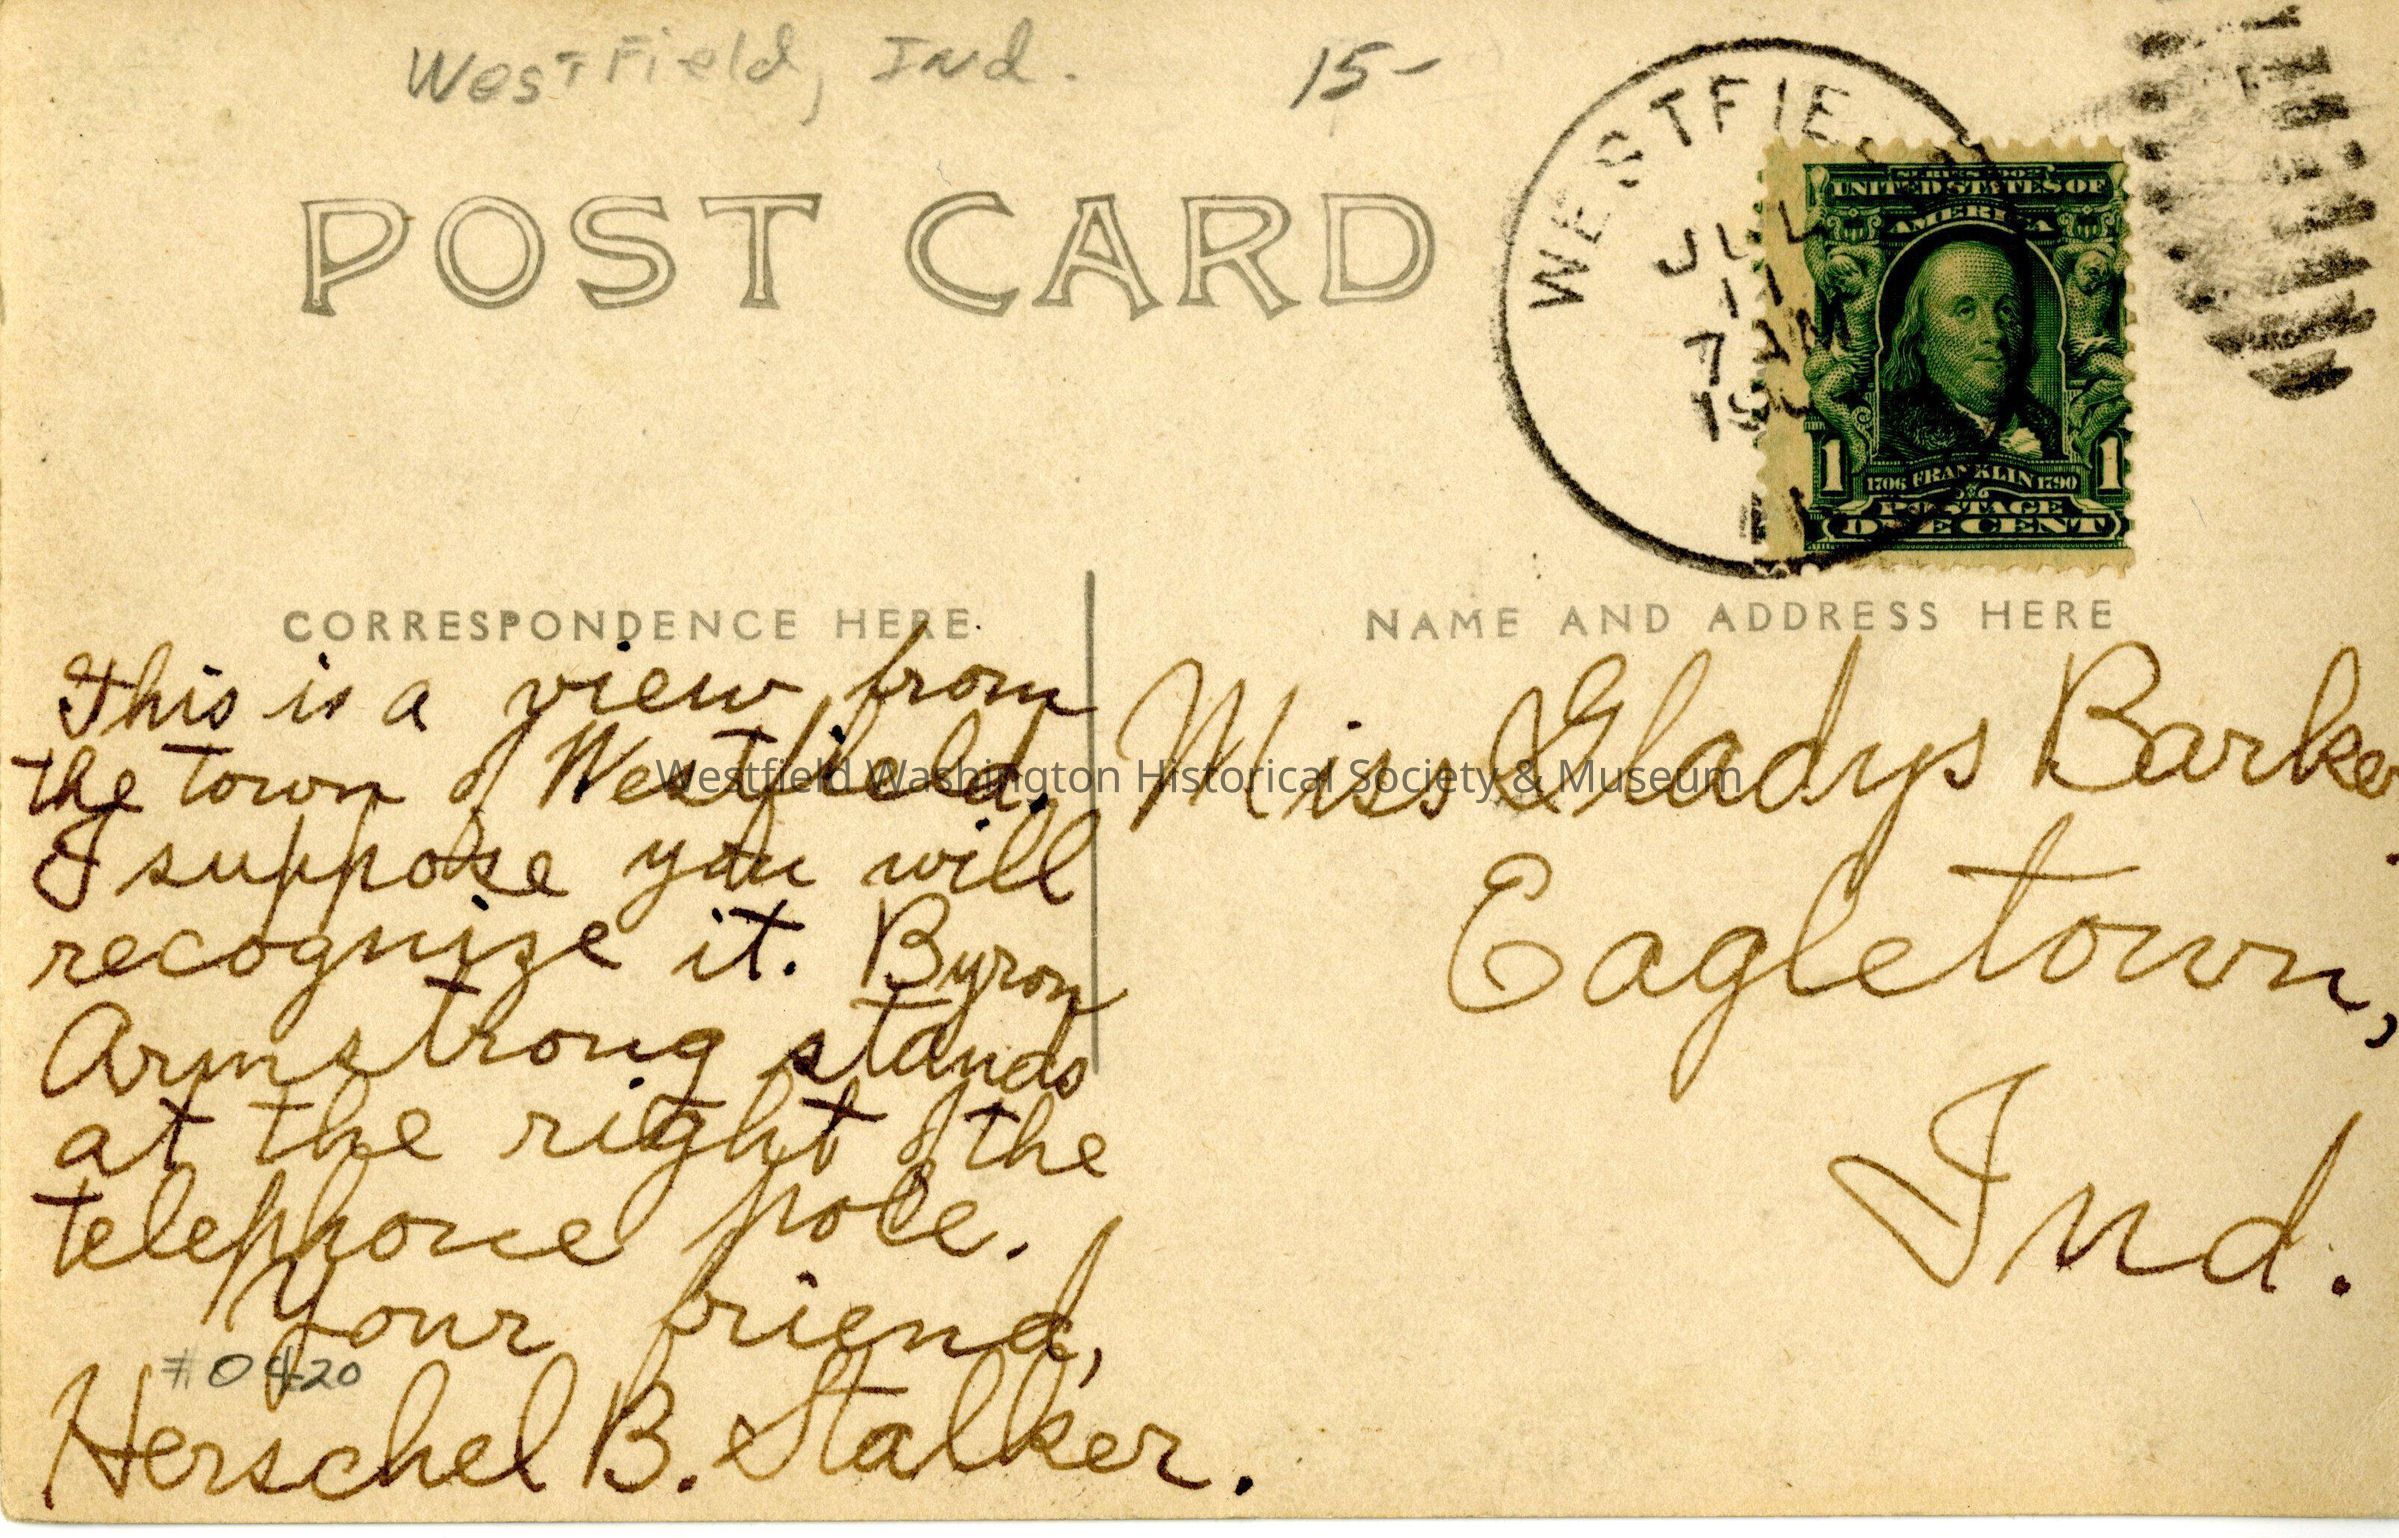 Westfield, Ind. 15-
POST CARD
WESTFIE
JUL
11
7 AM
SERIES 1902
UNITED STATES OF
AMERICA
1 1
1706 FRANKLIN 1790
POSTAGE
ONE CENT
CORRESPONDENCE HERE
This is a view from
the town of Westfield.
I suppose you will
recognize it. Byron
Armstrong stands
at the right of the
telephone pole.
Your friend,
#0420
Herschel B. Stalker.
NAME AND ADDRESS HERE
Miss Gladys Barker
Eagletown,
Ind.
Westfield Washington Historical Society & Museum